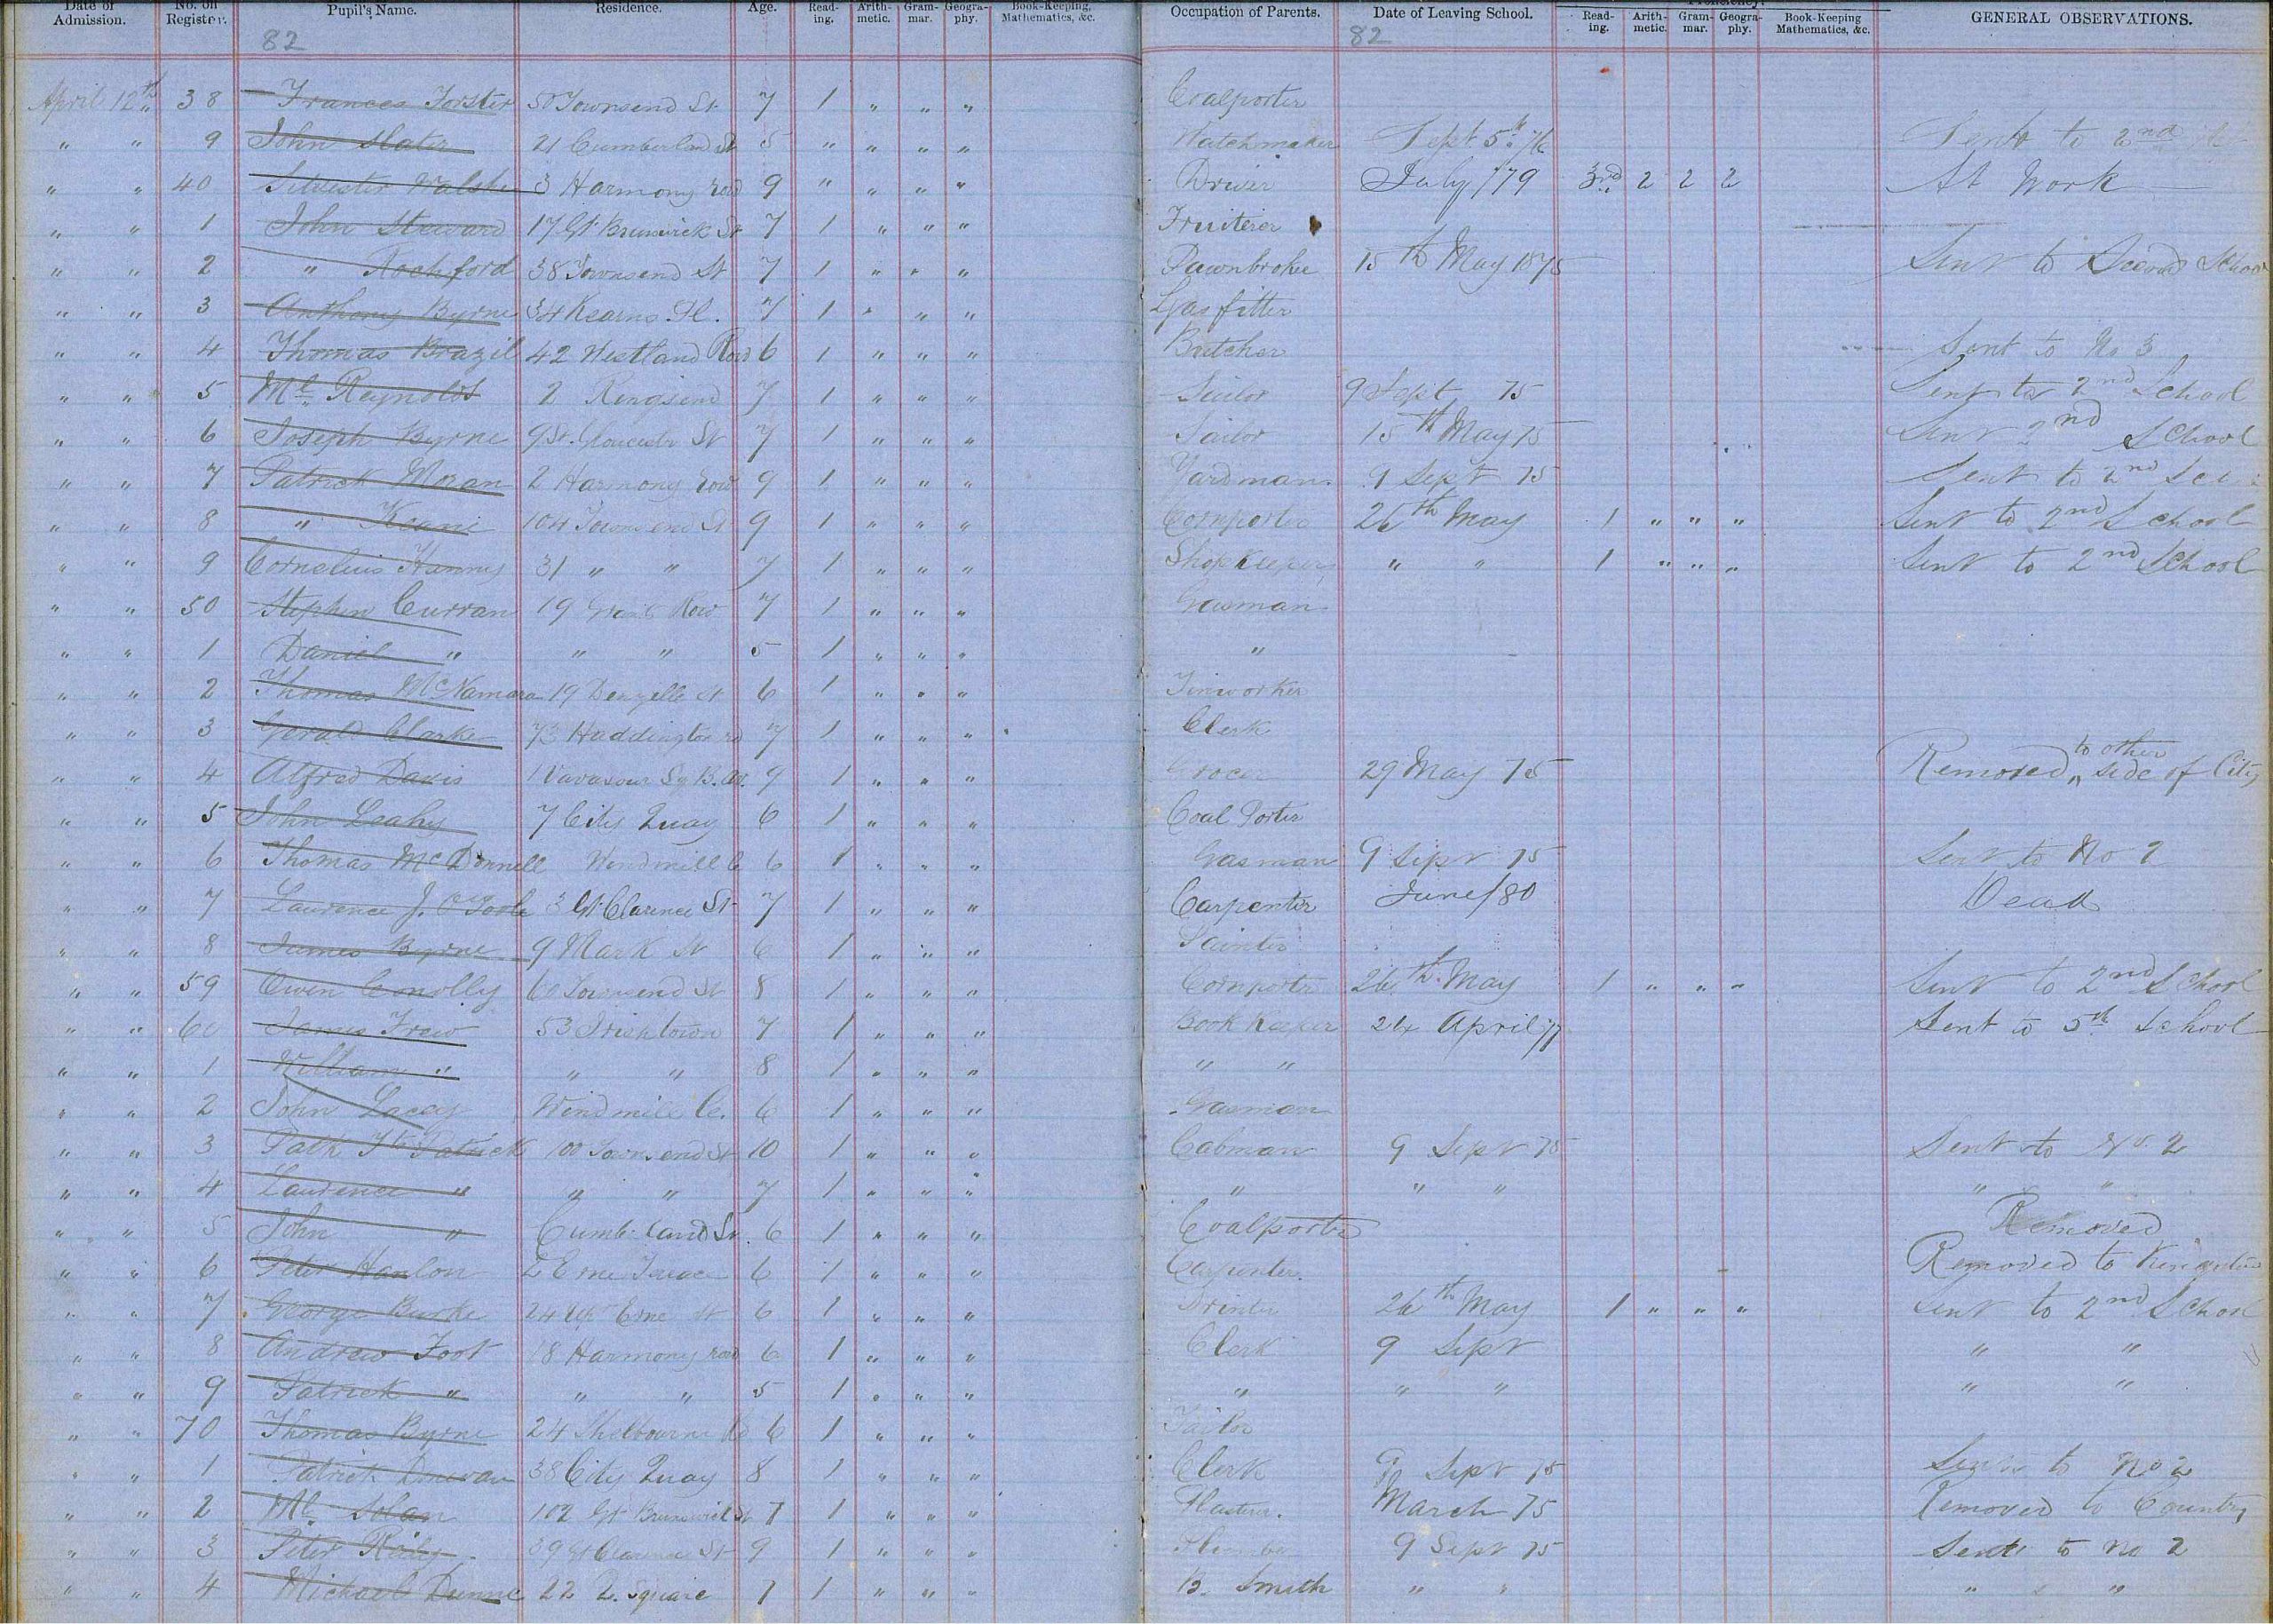 Date of Admission. No. on Register. Pupil's Name. Residence. Age. Read-ing. Arith-metic. Gram-mar. Geogra-phy. Book-Keeping, Mathematics, &c. Occupation of Parents. Date of Leaving School. Proficiency. Read-ing. Arith-metic. Gram-mar. Geogra-phy. Book-Keeping Mathematics, &c. GENERAL OBSERVATIONS.
82 82
April 12th 38 Frances Forster 50 Townsend St 7 1 " " " Coalporter
" " 9 John Slater 21 Cumberland St 5 " " " " Watchmaker Sept 5th 76 Sent to 2nd
" " 40 Silvester Walshe 3 Harmony Row 9 " " " " Driver July /79 3rd 2 2 2 At Work
" " 1 John Steward 17 Gt Brunswick St 7 1 " " " Fruiterer
" " 2 " Rochford 38 Townsend St 7 1 " " " Pawnbroker 15th May 1875 Sent to Second School
" " 3 Anthony Byrne 34 Kearns Pl. 7 1 " " " Gas fitter
" " 4 Thomas Brazil 42 Westland Row 6 1 " " " Butcher Sent to No 3
" " 5 Ml. Reynolds 2 Ringsend 7 1 " " " Sailor 9 Sept 75 Sent to 2nd School
" " 6 Joseph Byrne 9 St. Gloucester St 7 1 " " " Tailor 15th May 75 Sent 2nd School
" " 7 Patrick Moran 2 Harmony Row 9 1 " " " Yardman. 9 Sept 75 Sent to 2nd
" " 8 " Keane 104 Townsend St 9 1 " " " Cornporter 26th May 1 " " " Sent to 2nd School
" " 9 Cornelius 31 " " 7 1 " " " Shopkeeper " " 1 " " " Sent to 2nd School
" " 50 Stephen Curran 19 Grants Row 7 1 " " " Gasman
" " 1 Daniel " " " 5 1 " " " "
" " 2 Thomas McNamara 19 Denzelle St 6 1 " " " Tinworker
" " 3 Gerald Clarke 73 Haddington rd 7 1 " " " Clerk
" " 4 Alfred Davis 1 Vavasour Sq B. Av. 9 1 " " " Grocer 29 May 75 Removed to other side of City
" " 5 John Leahy 7 City Quay 6 1 " " " Coal Porter
" " 6 Thomas McDonnell Windmill 6 1 " " " Gasman 9 Sept 75 Sent to No 2
" " 7 Laurence J. O'Toole 3 Gt Clarence St 7 1 " " " Carpenter June/80 Dead
" " 8 James Byrne 9 Mark St 6 1 " " " Painter
" " 59 Owen Conolly 60 Townsend St 8 1 " " " Cornporter 26th May 1 " " " Sent to 2nd School
" " 60 James Frew 53 Irishtown 7 1 " " " Book Keeper 24 April 77 Sent to 5th School
" " 1 William " " " 8 1 " " " " "
" " 2 John Lacey Windmill 6 1 " " " Gasman
" " 3 Patk Fitzpatrick 100 Townsend St 10 1 " " " Cabman 9 Sept 75 Sent to No. 2
" " 4 Laurence " " " 7 1 " " " " " " " "
" " 5 John " Cumberland St. 6 1 " " " Coalporter Removed
" " 6 Peter Hanlon 2 Erne Terrace 6 1 " " " Carpenter. Removed to Kingstown
" " 7 George Burke 24 Upr Erne St 6 1 " " " Printer 26th May 1 " " " Sent to 2nd School
" " 8 Andrew Foot 18 Harmony Row 6 1 " " " Clerk 9 Sept " "
" " 9 Patrick " " " 5 1 " " " " " " " "
" " 70 Thomas Byrne 24 Shelbourne 6 1 " " " Tailor
" " 1 Patrick Donovan 38 City Quay 8 1 " " " Clerk 9 Sept 75 Sent to No 2
" " 2 Ml. Solan 102 Gt Brunswick St 7 1 " " " Plasterer. March 75 Removed to Country
" " 3 Peter 39 Gt Clarence St 9 1 " " " Plumber 9 Sept 75 Sent to No 2
" " 4 Michael Dunne 22 Q. Square 7 1 " " " B. Smith " " " " "